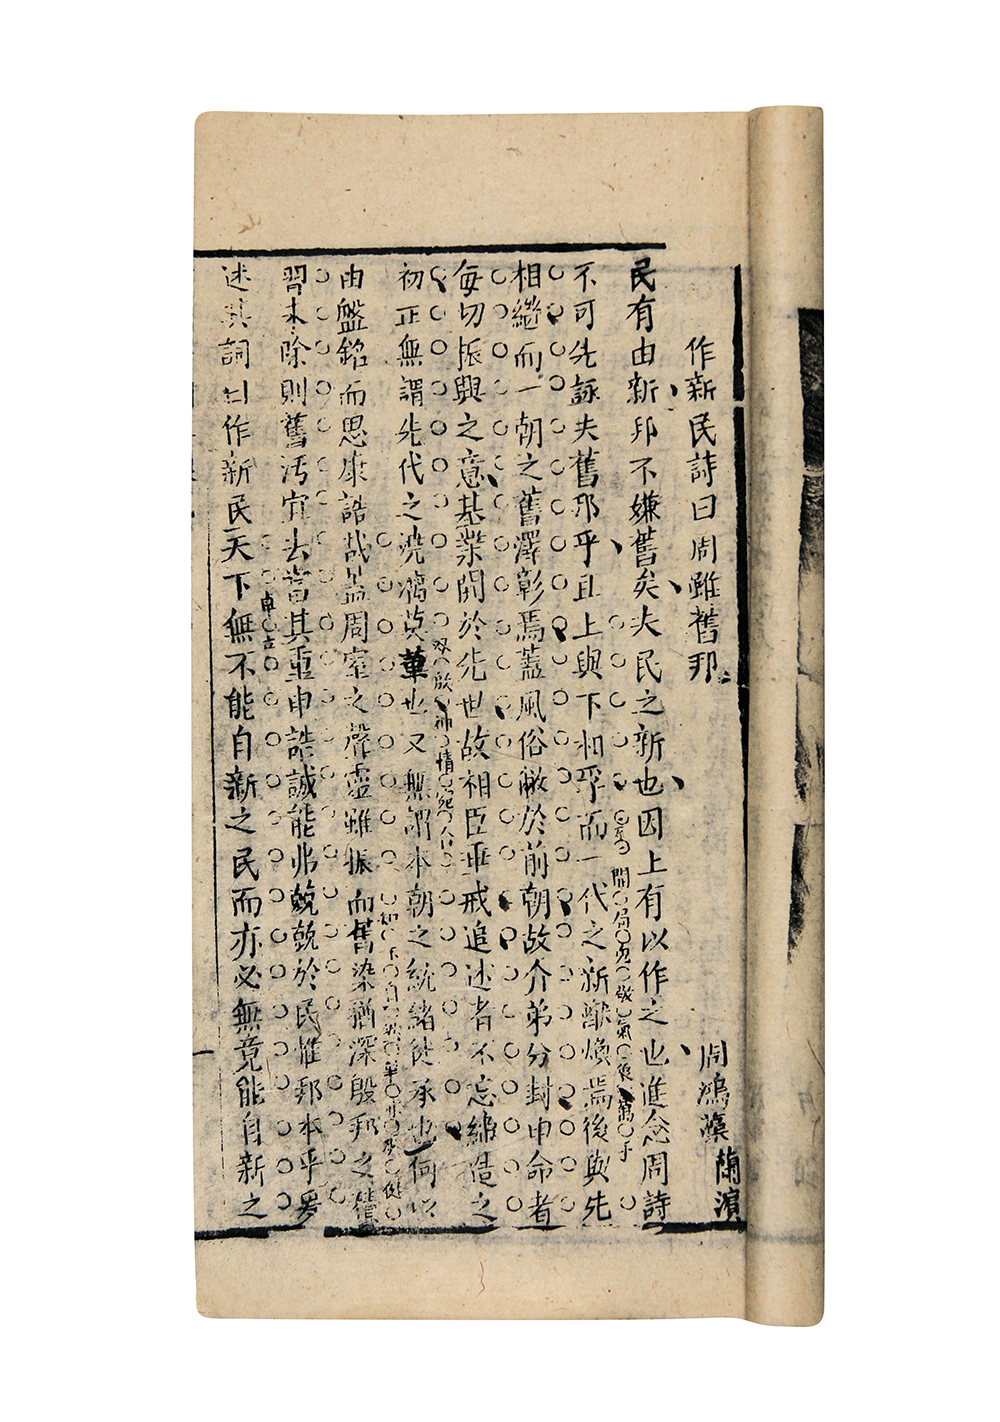 作新民詩曰周雖舊邦
周鴻藻蘭濱
民有由新邦不嫌舊矣夫民之新也因上有以作之也進念周詩
開局勿敬氣褎萬千
不可先詠夫舊邦乎且上與下相孚而一代之新猷煥焉後與先
相繼而一朝之舊澤彰焉蓋風俗敝於前朝故介弟分封申命者
每切振興之意基業開於先世故相臣垂戒追述者不忘締造之
双成神情
初正無謂先代之澆漓莫革也又無謂本朝之統緒徒承也何以
由盤銘而思康誥哉蓋周室之聲靈雖振而舊染猶深殷邦之
習未除則舊污宜去當其重申誥誡能弗兢兢於民惟邦本乎爰
卓立
述其詞曰作新民天下無不能自新之民而亦必無竟能自新之